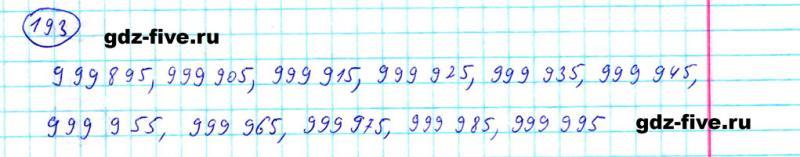 193
gdz-five.ru
999 895, 999 905, 999 915, 999 925, 999 935, 999 945,
999 955, 999 965, 999 975, 999 985, 999 995
gdz-five.ru